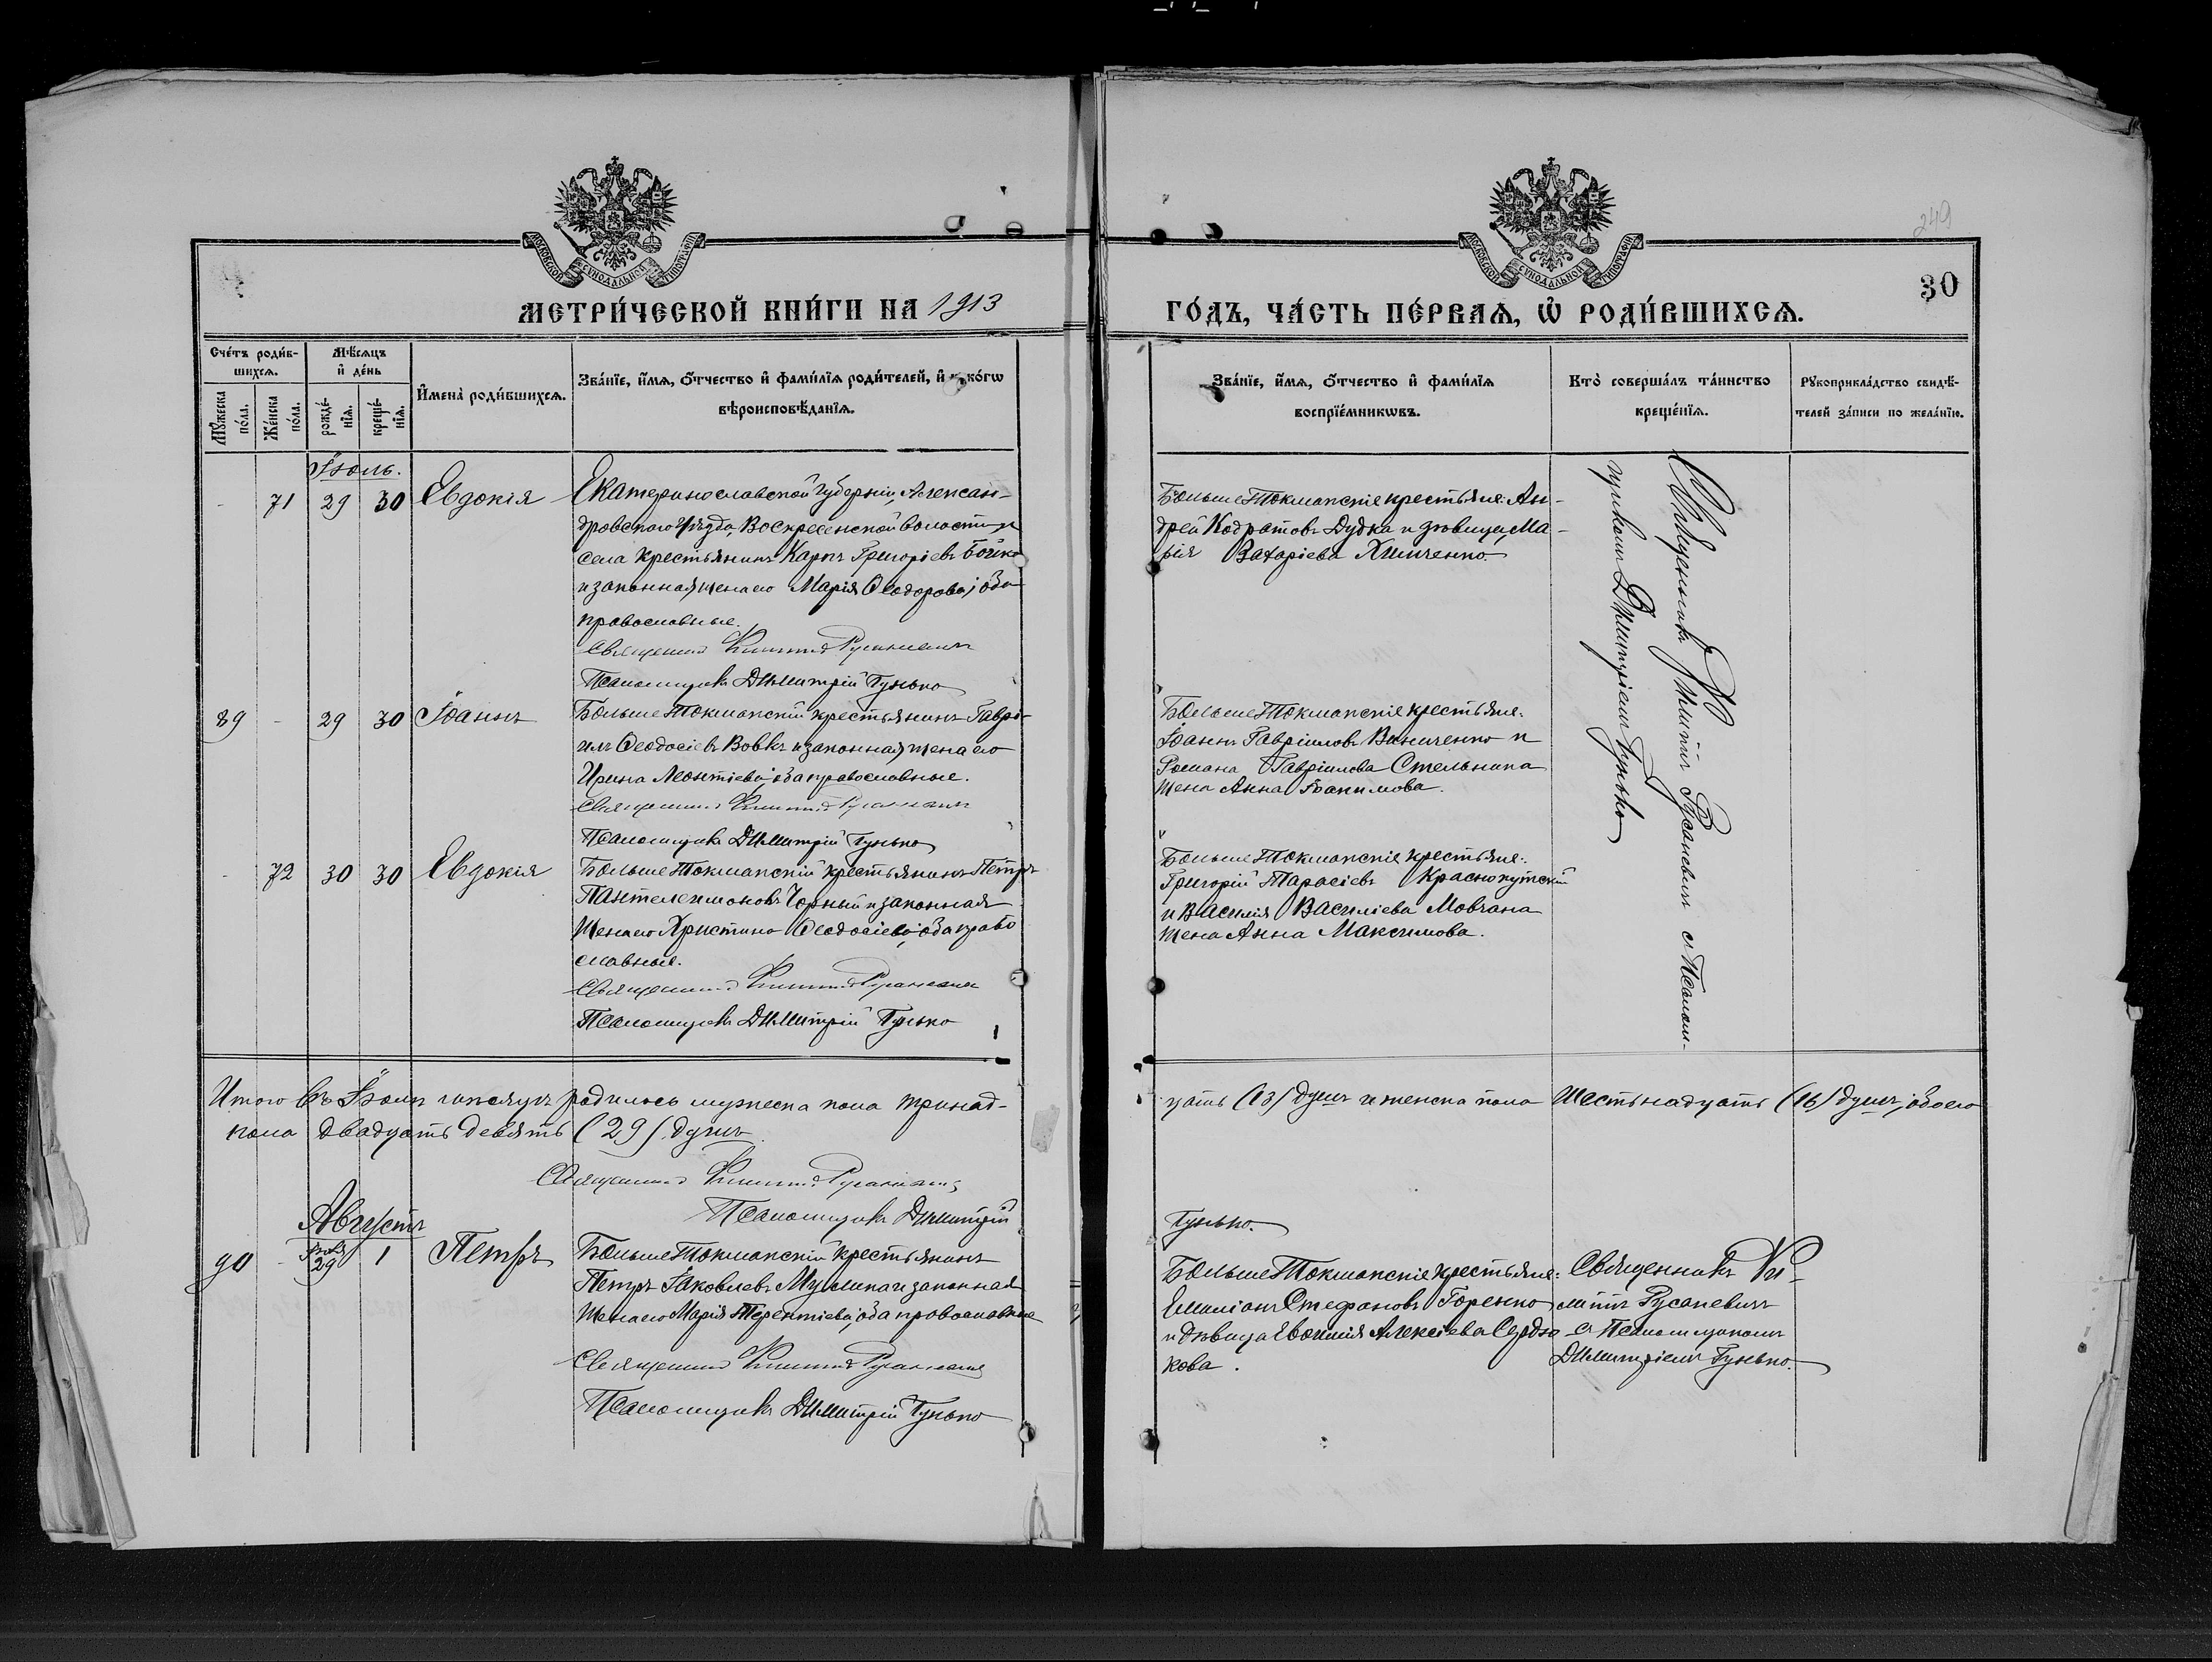 249
30
МОСКОВСКОЙ СѴНОДАЛЬНОЙ ТИПОГРАФІИ
МОСКОВСКОЙ СѴНОДАЛЬНОЙ ТИПОГРАФІИ
МЕТРИ́ЧЕСКОЙ КНИ́ГИ НА 1913
ГО́ДЪ, ЧА́СТЬ ПЕ́РВАѦ, Ѿ РОДИ́ВШИХСѦ.
Сче́тъ роди́в-
шихсѧ.
Мꙋ́жеска по́ла.
Же́нска по́ла.
Мѣ́сѧцъ и҆ де́нь
рожде́-нїѧ.
креще́-нїѧ.
И҆мена̀ роди́вшихсѧ.
Зва́нїе, и҆́мѧ, ѻ҆́тчество и҆ фами́лїѧ роди́телей, и҆ ко́гѡ
вѣроисповѣ́данїѧ.
Зва́нїе, и҆́мѧ, ѻ҆́тчество и҆ фами́лїѧ
воспрїе́мникѡвъ.
Кто̀ соверша́лъ та́инство
креще́нїѧ.
Рꙋкоприкла́дство свидѣ́-
телей за́писи по жела́нїю.
Іюль.
- 71 29 30 Евдокія
Екатеринославской губерніи, Алексан-
дровскаго уѣзда, Воскресенской волости и
села крестьянинъ Карпъ Григоріевъ Бойко
и законная жена его Марія Ѳеодорова; оба
православные.
Священникъ Филиппъ Русаневичъ
Псаломщикъ Димитрій Гунько
Больше Токмакскіе крестьяне: Ан-
дрей Кодратовъ Дудка и дѣвица, Ма-
рія Захаріева Химченко.
Священникъ Филиппъ Русаневичъ съ Псалом-
щикомъ Димитріемъ Гунько
89 - 29 30 Іоаннъ
Больше Токмакскій крестьянинъ Гаврі-
илъ Ѳеодосіевъ Вовкъ и законная жена его
Ирина Леонтіева; оба православные.
Священникъ Филиппъ Русаневичъ
Псаломщикъ Димитрій Гунько
Больше Токмакскіе крестьяне:
Іоаннъ Гавріиловъ Виниченко и
Романа Гавріилова Стельника
жена Анна Іоакимова.
- 72 30 30 Евдокія
Больше Токмакскій крестьянинъ Петръ
Пантелеимоновъ Чорный и законная
жена его Христина Ѳеодосіева; оба право
славные.
Священникъ Филиппъ Русаневичъ
Псаломщикъ Димитрій Гунько
Больше Токмакскіе крестьяне:
Григорій Тарасіевъ Краснокутскій
и Василія Василіева Мовчана
жена Анна Максимова.
Итого въ Іюлѣ мѣсяцѣ родилось мужеска пола тринад-
цать (13) душъ и женска пола шестьнадцать (16) душъ; обоего
пола двадцать девять (29) душъ.
Священникъ Филиппъ Русаневичъ
Псаломщикъ Димитрій
Гунько.
Августъ
90 - Іюля 29 1 Петръ
Больше Токмакскій крестьянинъ
Петръ Іаковлевъ Мушика и законная
жена его Марія Терентіева; оба православные
Священникъ Филиппъ Русаневичъ
Псаломщикъ Димитрій Гунько
Больше Токмакскіе крестьяне:
Емиліанъ Стефановъ Горенко
и дѣвица Евѳимія Алексіева Сердю
кова.
Священникъ Фи-
липпъ Русаневичъ
съ Псаломщикомъ
Димитріемъ Гунько.